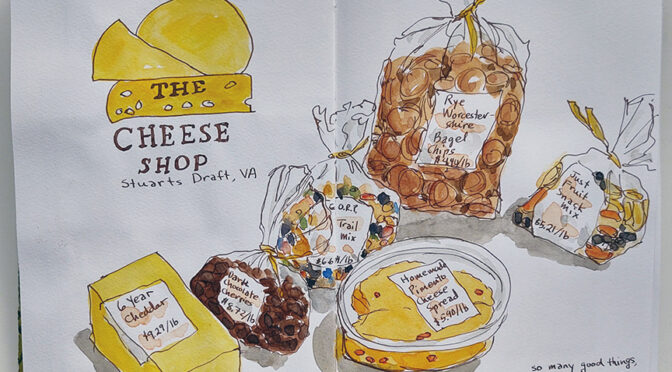 THE
CHEESE
SHOP
Stuarts Draft, VA
Rye
Worcester-
shire
Bagel
Chips
$4.90/lb
G.O.R.P.
Trail
mix
$6.69/lb
Just
Fruit
snack
mix
$5.21/lb
6 Year
Cheddar
$9.29/lb
Dark
Chocolate
Cherries
$8.72/lb
Homemade
Pimento
Cheese
Spread
$5.90/lb
so many good things,